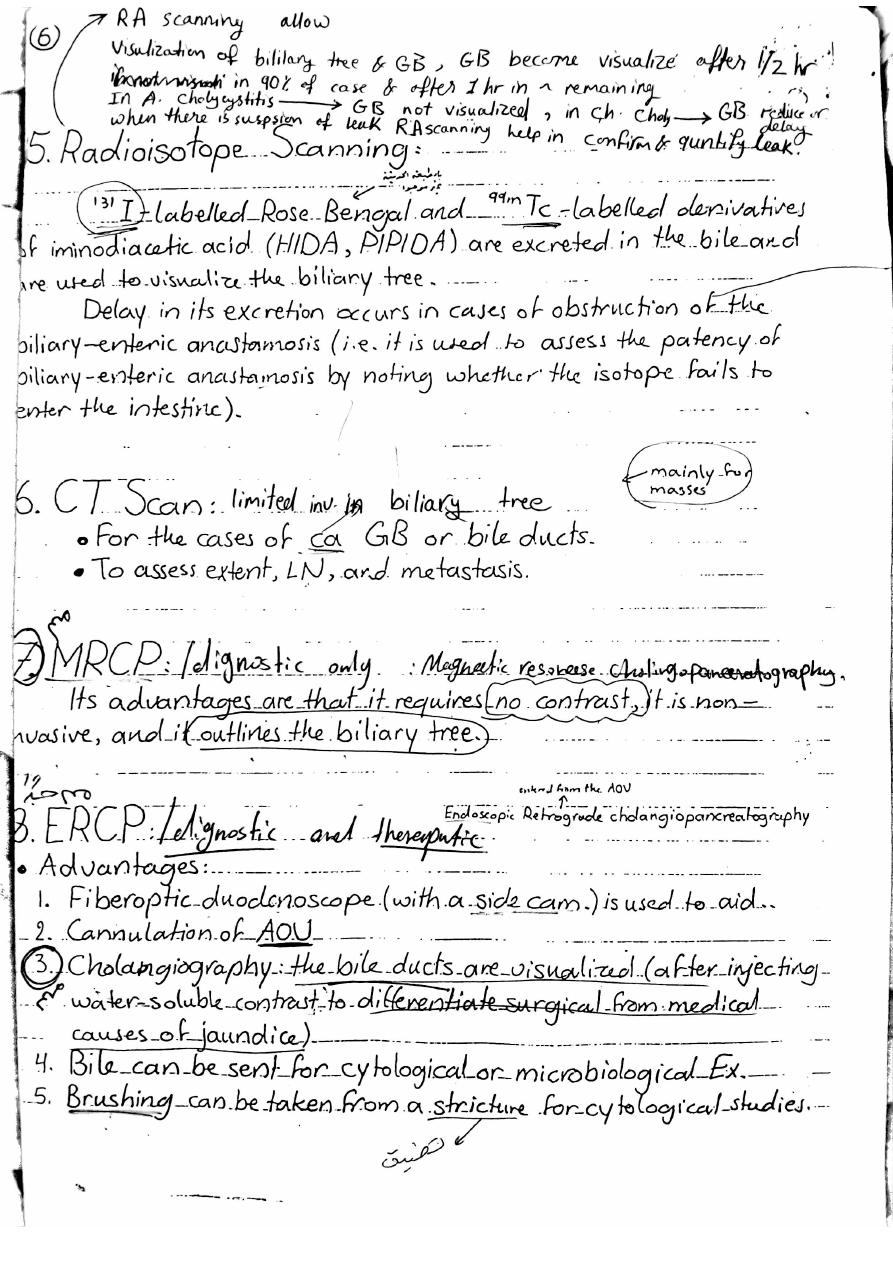 (6)
RA scanning allow
Visulization of bililary tree & GB, GB become visualize after 1/2 hr
in 90% of case & after 1 hr in remaining
In A. cholycystitis → GB not visualized, in ch. choly → GB reduce or delay
when there is suspsion of leak RA scanning help in confirm & quntify leak.
5. Radioisotope Scanning:
131 I-labelled Rose Bengal and 99m Tc-labelled derivatives
of iminodiacetic acid (HIDA, PIPIDA) are excreted in the bile and
are used to visualize the biliary tree.
Delay in its excretion occurs in cases of obstruction of the
biliary-enteric anastamosis (i.e. it is used to assess the patency of
biliary-enteric anastamosis by noting whether the isotope fails to
enter the intestine).
mainly for
masses
6. CT Scan: limited inv. in biliary tree
• For the cases of ca GB or bile ducts.
• To assess extent, LN, and metastasis.
7. MRCP: / dignostic only : Magnetic
Its advantages are that it requires no contrast, it is non-
nvasive, and it outlines the biliary tree.
19
from the AOV
Endoscopic Retrograde cholangiopancreatography
8. ERCP: / dignostic and thereputic
• Advantages:
1. Fiberoptic duodenoscope (with a side cam.) is used to aid..
2. Cannulation of AOV
3. Cholangiography: the bile ducts are visualized (after injecting
water-soluble contrast to differentiate surgical from medical
causes of jaundice)
4. Bile can be sent for cytological or microbiological Ex.
5. Brushing can be taken from a stricture for cytological studies.
تضيق